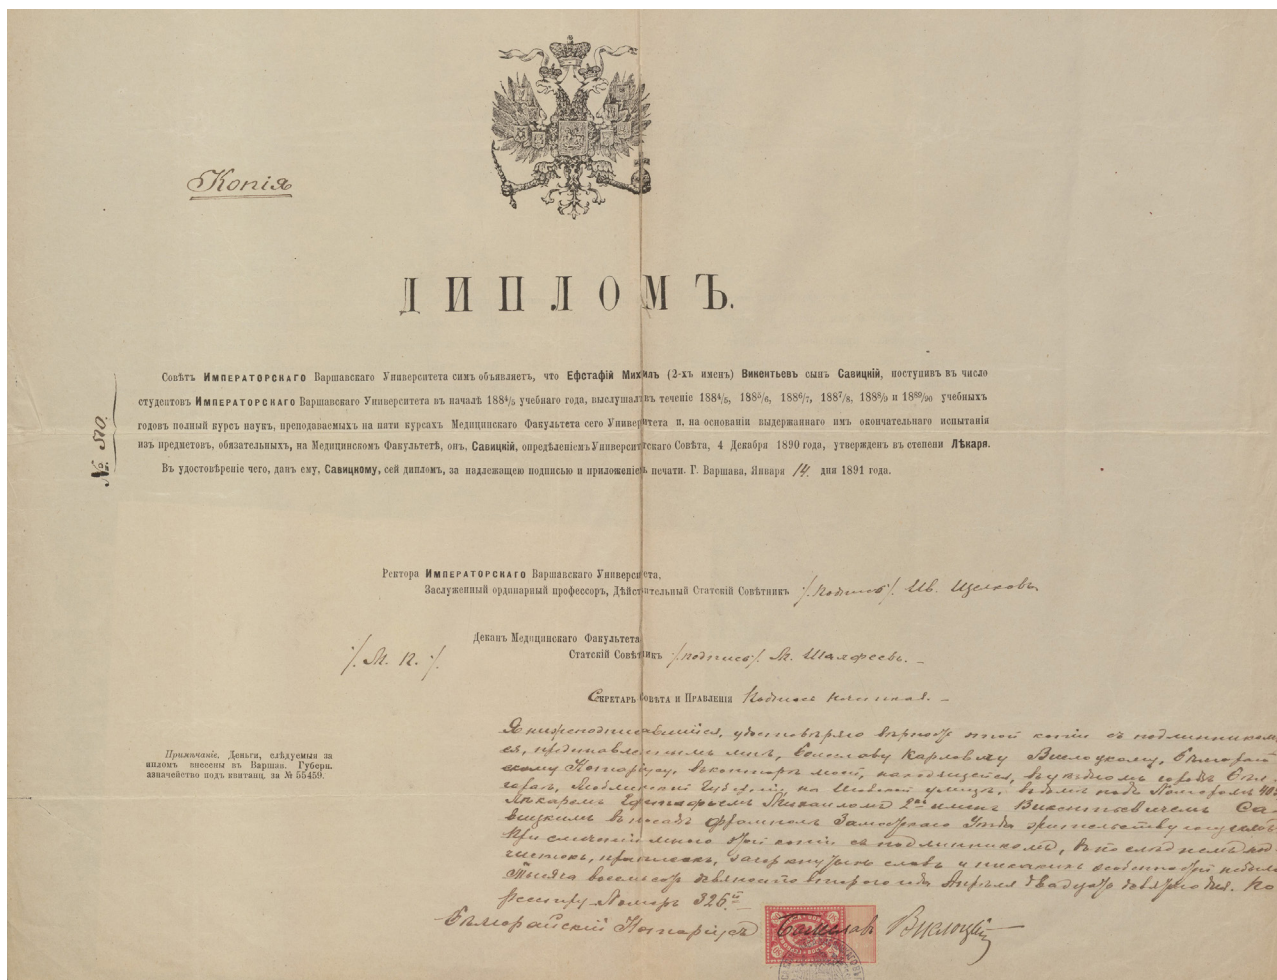 Копія
ДИПЛОМЪ.
№. 510.
Совѣтъ ИМПЕРАТОРСКАГО Варшавскаго Университета симъ объявляетъ, что Ефстафій Михаилъ (2-хъ именъ) Викентьевъ сынъ Савицкій, поступивъ въ число
студентовъ ИМПЕРАТОРСКАГО Варшавскаго Университета въ началѣ 1884/5 учебнаго года, выслушалъ въ теченіе 1884/5, 1885/6, 1886/7, 1887/8, 1888/9 и 1889/90 учебныхъ
годовъ полный курсъ наукъ, преподаваемыхъ на пяти курсахъ Медицинскаго Факультета сего Университета и, на основаніи выдержаннаго имъ окончательнаго испытанія
изъ предметовъ, обязательныхъ, на Медицинскомъ Факультетѣ, онъ, Савицкій, опредѣленіемъ Университетскаго Совѣта, 4 Декабря 1890 года, утвержденъ въ степени Лѣкаря.
Въ удостовѣреніе чего, данъ ему, Савицкому, сей дипломъ, за надлежащею подписью и приложеніемъ печати. Г. Варшава, Января 14. дня 1891 года.
Ректоръ ИМПЕРАТОРСКАГО Варшавскаго Университета,
Заслуженный ординарный профессоръ, Дѣйствительный Статскій Совѣтникъ /.подпись/. Ив. Щелковъ
Деканъ Медицинскаго Факультета
Статскій Совѣтникъ /.подпись/. М. Шалфеевъ.
/. М. П. /.
Секретарь Совѣта и Правленія Подпись
Примѣчаніе. Деньги, слѣдуемыя за
дипломъ внесены въ Варшав. Губерн.
казначейство подъ квитанц. за № 55459.
Я нижеподписавшійся, удостовѣряю вѣрность этой копіи съ подлинникомъ
ея, представленнымъ мнѣ, Болеславу Карловичу Бѣлгорай
скому Нотаріусу, въ конторѣ моей, находящейся, въ уѣздномъ городѣ Бѣл
гораѣ, Люблинской Губерніи, на улицѣ, въ домѣ подъ Номеромъ 40
Лѣкаремъ Евстафьемъ Михаиломъ 2хъ именъ Викентьевичемъ Са
вицкимъ въ посадѣ Фрамполь Замостскаго Уѣзда жительствующимъ
При сличеніи мною этой копіи съ подлинникомъ, въ послѣднемъ под
чистокъ, приписокъ, зачеркнутыхъ словъ и никакихъ особенностей небыло
Тысяча восемьсотъ девяносто второго года Апрѣля двадцать девятого дня. По
реестру Номеръ 326й
Бѣлгорайскій Нотаріусъ Болеславъ